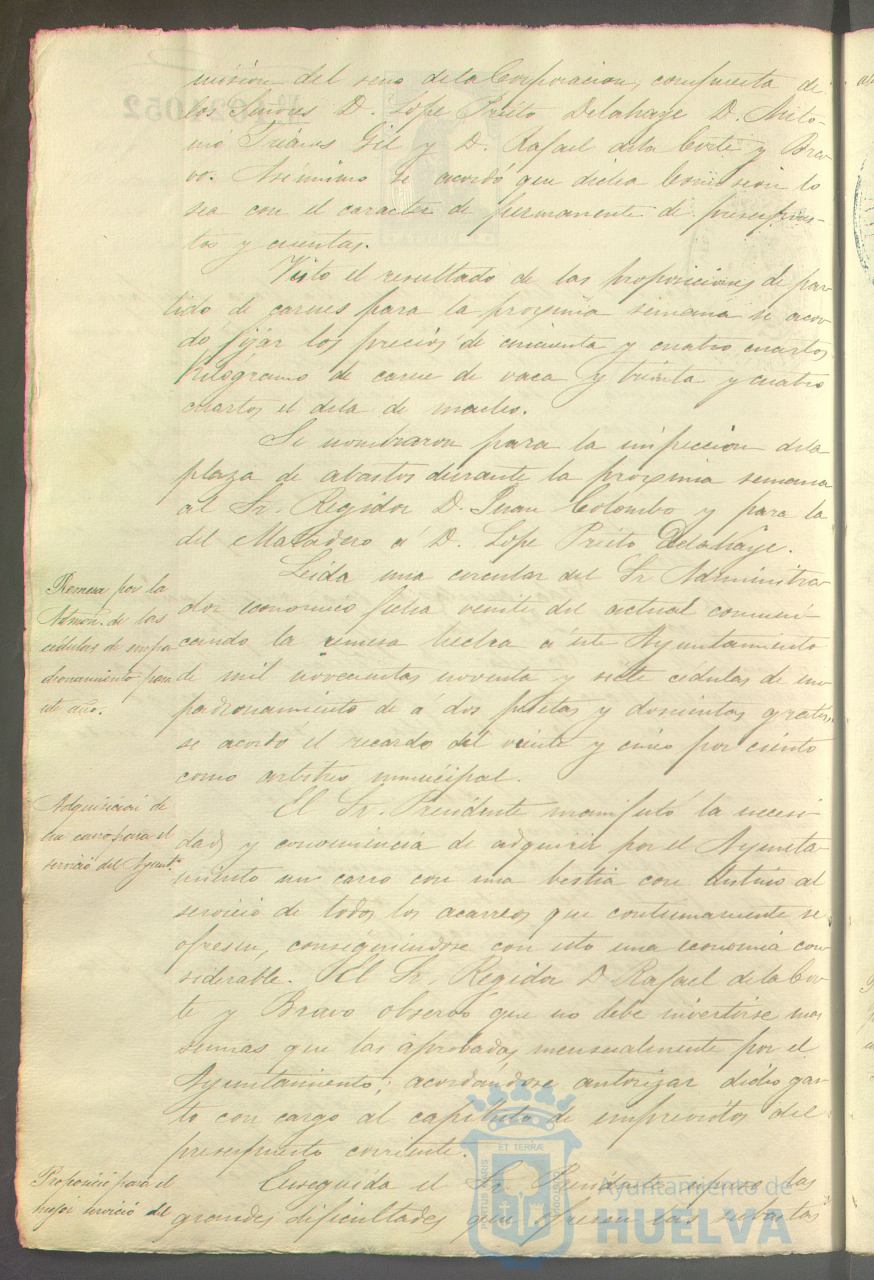 mision del seno de la Corporacion, compuesta de
los Señores D. Lope Prieto Delahaye D. Anto-
nio Triános Gil y D. Rafael de la Corte y Bra-
vo. Asimismo se acordó que dicha Comision lo
sea con el caracter de permanente de presupues-
tos y cuentas.
Visto el resultado de las proposiciones de par-
tido de carnes para la proxima semana se acor-
dó fijar los precios de cincuenta y cuatro cuartos
kilogramo de carne de vaca y treinta y cuatro
cuartos el dela de macho.
Se nombraron para la inspeccion dela
plaza de abastos durante la proxima semana
al Sr. Regidor D. Juan Colombo y para la
del Matadero á D. Lope Prieto Delahaye.
Remesa por la
Admon. de las
cédulas de empa
dronamiento para
este año.
Leida una circular del Sr Administra-
dor economico fecha veinte del actual comuni
cando la remesa hecha á este Ayuntamiento
de mil novecientas noventa y siete cédulas de em
padronamiento de á dos pesetas y doscientas gratis,
se acordó el recargo del veinte y cinco por ciento
como arbitrio municipal.
Adquisicion de
un carro para el
servicio del Ayunt.º
El Sr. Presidente manifestó la necesi
dad y conveniencia de adquirir por el Ayunta-
miento un carro con una bestia con destino al
servicio de todos los acarreos que continuamente se
ofrecen, consiguiendose con esto una economia con
siderable. El Sr. Regidor D Rafael de la Cor-
te y Bravo observó que no debe invertirse mas
sumas que las aprobadas mensualmente por el
Ayuntamiento; acordandose autorizar dicho gas-
to con cargo al capitulo de imprevistos del
presupuesto corriente.
Proposicio para el
mejor servicio del
Enseguida el Sr. Presidente espuso las
grandes dificultades que ofrecen las subastas
Ayuntamiento de
HUELVA